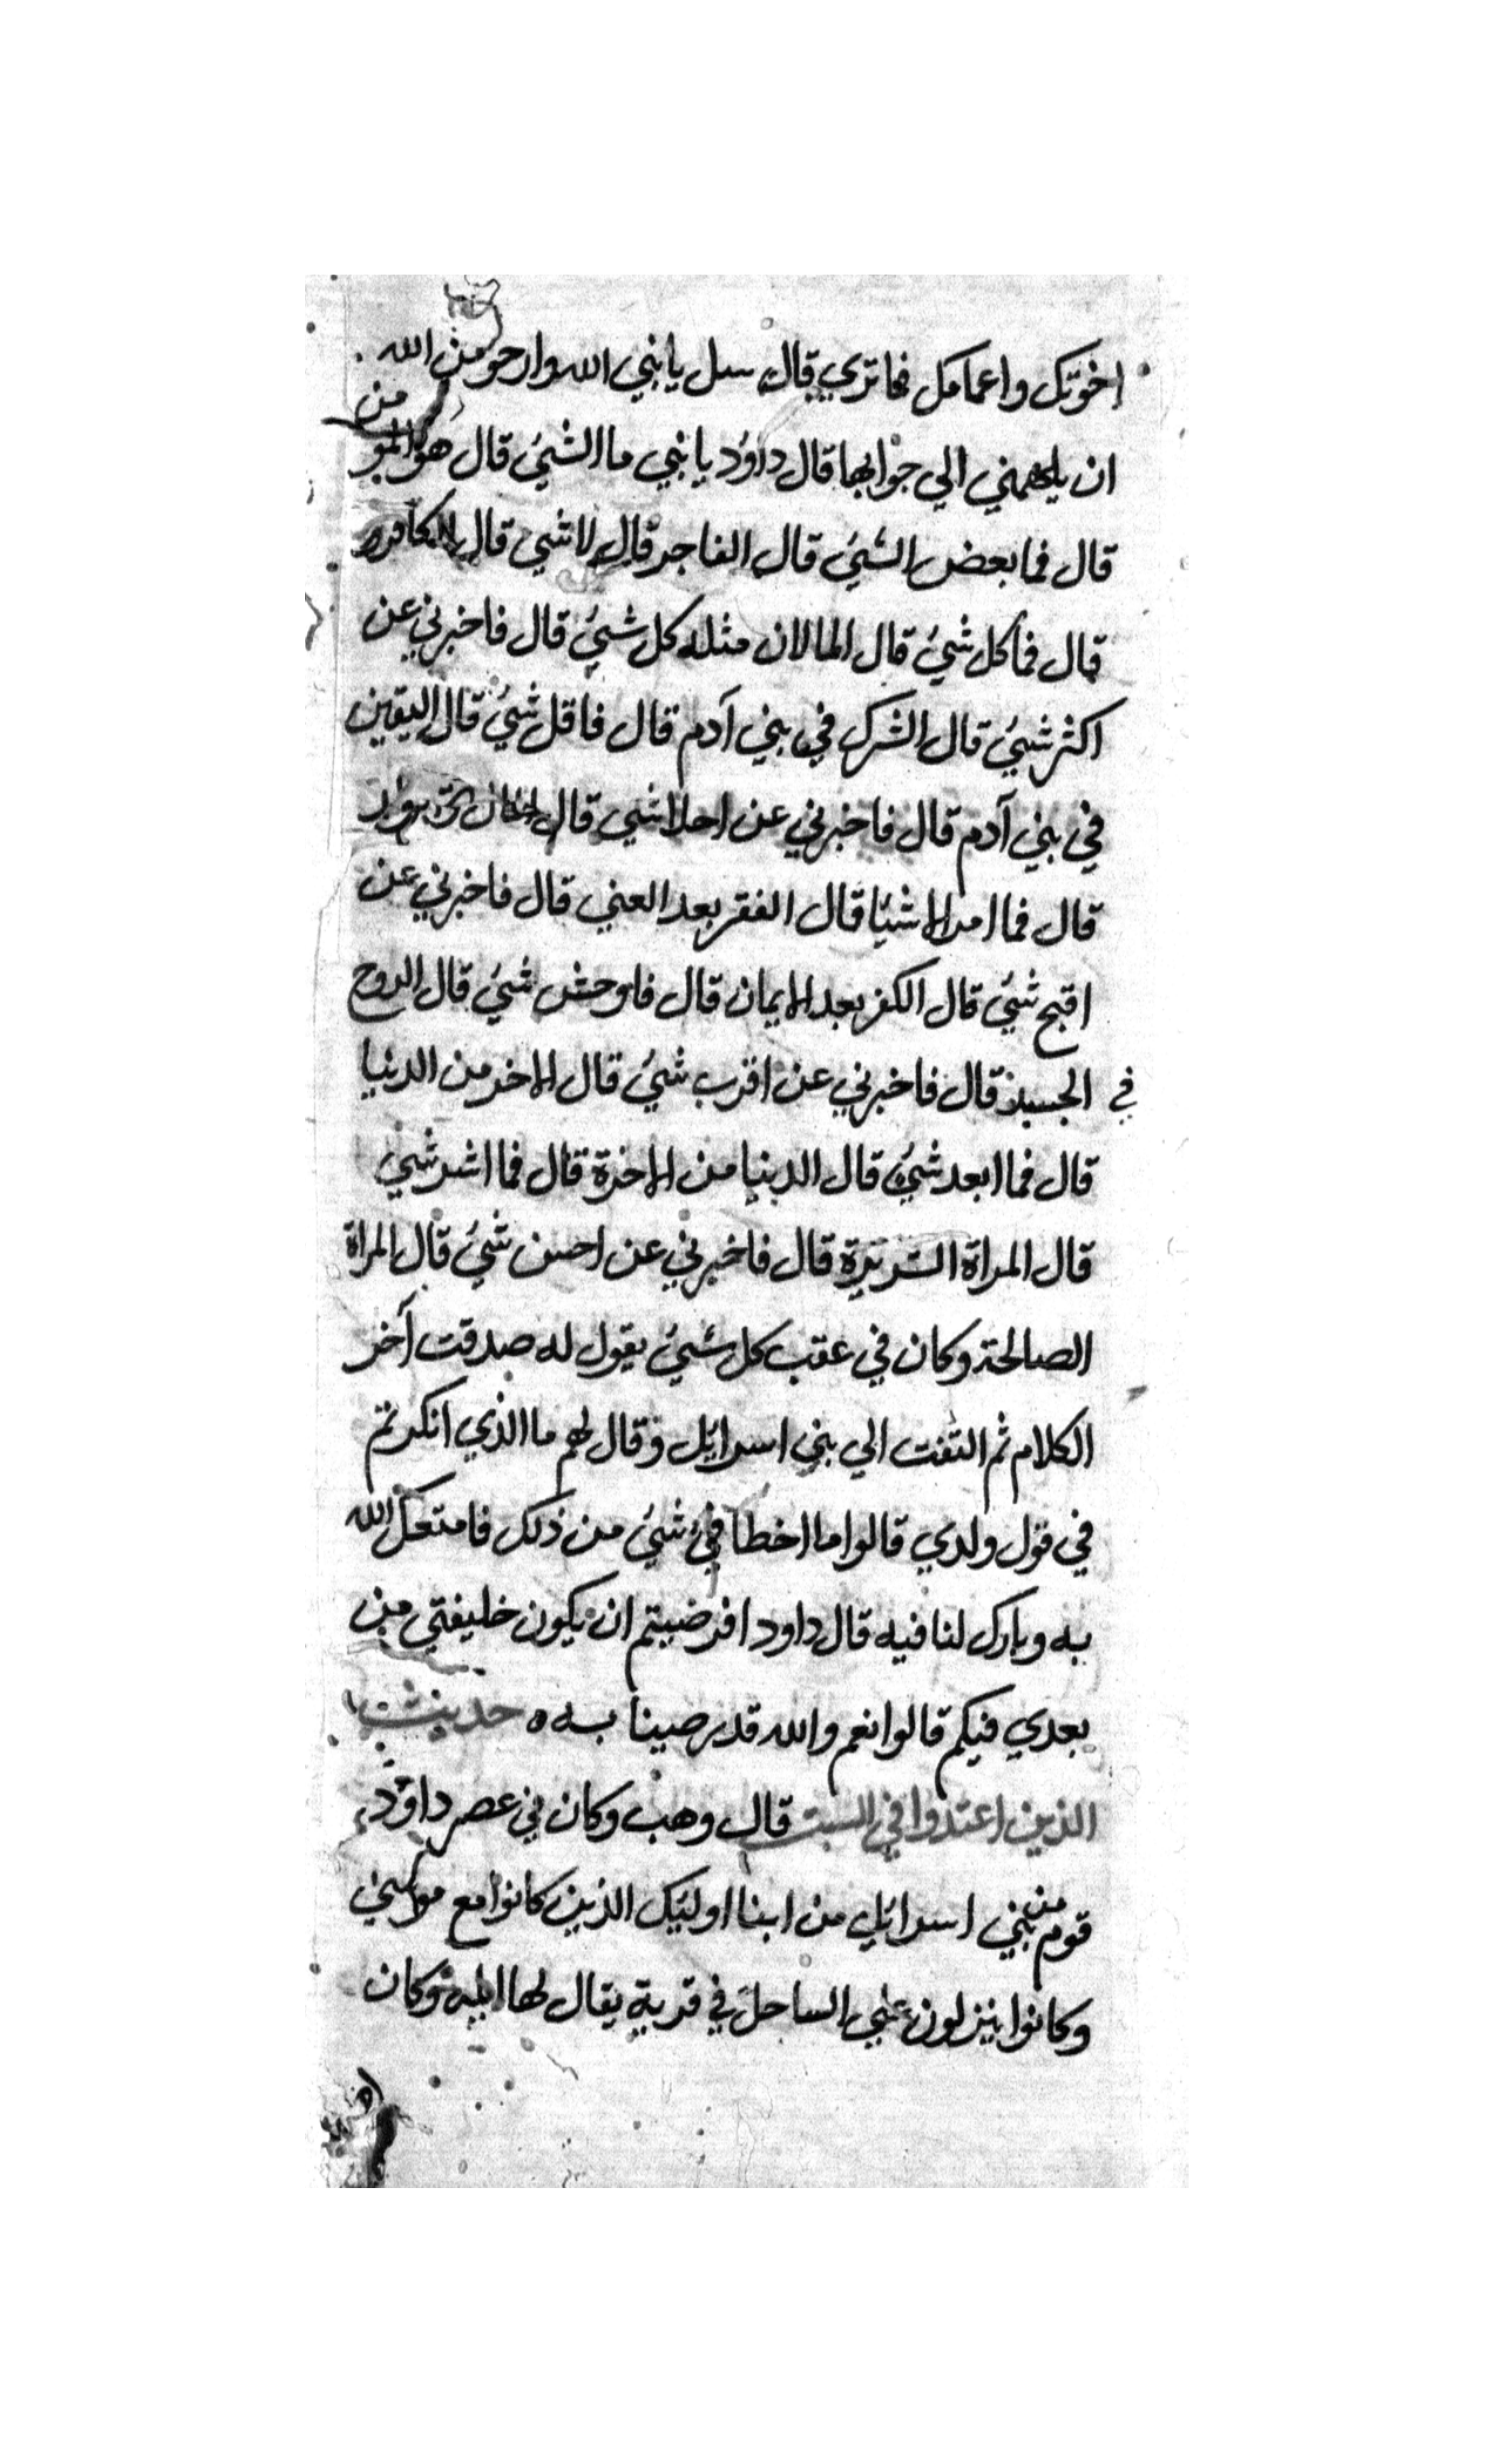 اخوتك واعمامك فما تري قال سل يا نبي الله وارجو من الله
ان يلهمني الي جوابها قال داوُد يا بني ما الشيُ قال هو المو من
قال فما بعض الشيُ قال الفاجر قال لا شي قال الكافر
قال فما كل شيُ قال الما لان مثله كل شيُ قال فاخبرني عن
اكثر شيُ قال الشرك في بني آدم قال فاقل شيُ قال اليقين
في بني آدم قال فاخبرني عن احلا شي قال
قال فما امر الاشيا قال الفقر بعد الغني قال فاخبرني عن
اقبح شيُ قال الكفر بعد الايمان قال فاوحش شيُ قال الروح
في الجسد قال فاخبرني عن اقرب شيُ قال الاخر من الدنيا
قال فما ابعد شيُ قال الدنيا من الاخرة قال فما اشر شي
قال المراة الشريرة قال فاخبرني عن احسن شيُ قال المراة
الصالحة وكان في عقب كل شيُ يقول له صدقت آخر
الكلام ثم التفت الي بني اسرايل وقال لهم ما الذي انكرتم
في قول ولدي قالوا ما اخطا في شيُ من ذلك فامتعك الله
به وبارك لنا فيه قال داود افرضيتم ان يكون خليفتي من
بعدي فيكم قالوا نعم والله قد رضينا به ه حديث
الذين اعتدوا في السبت قال وهب وكان في عصر داوُد
قوم من بني اسرائيل من ابنا اوليك الذين كانوا مع موسي
وكانوا ينزلون علي الساحل في قرية يقال لها ايله وكان